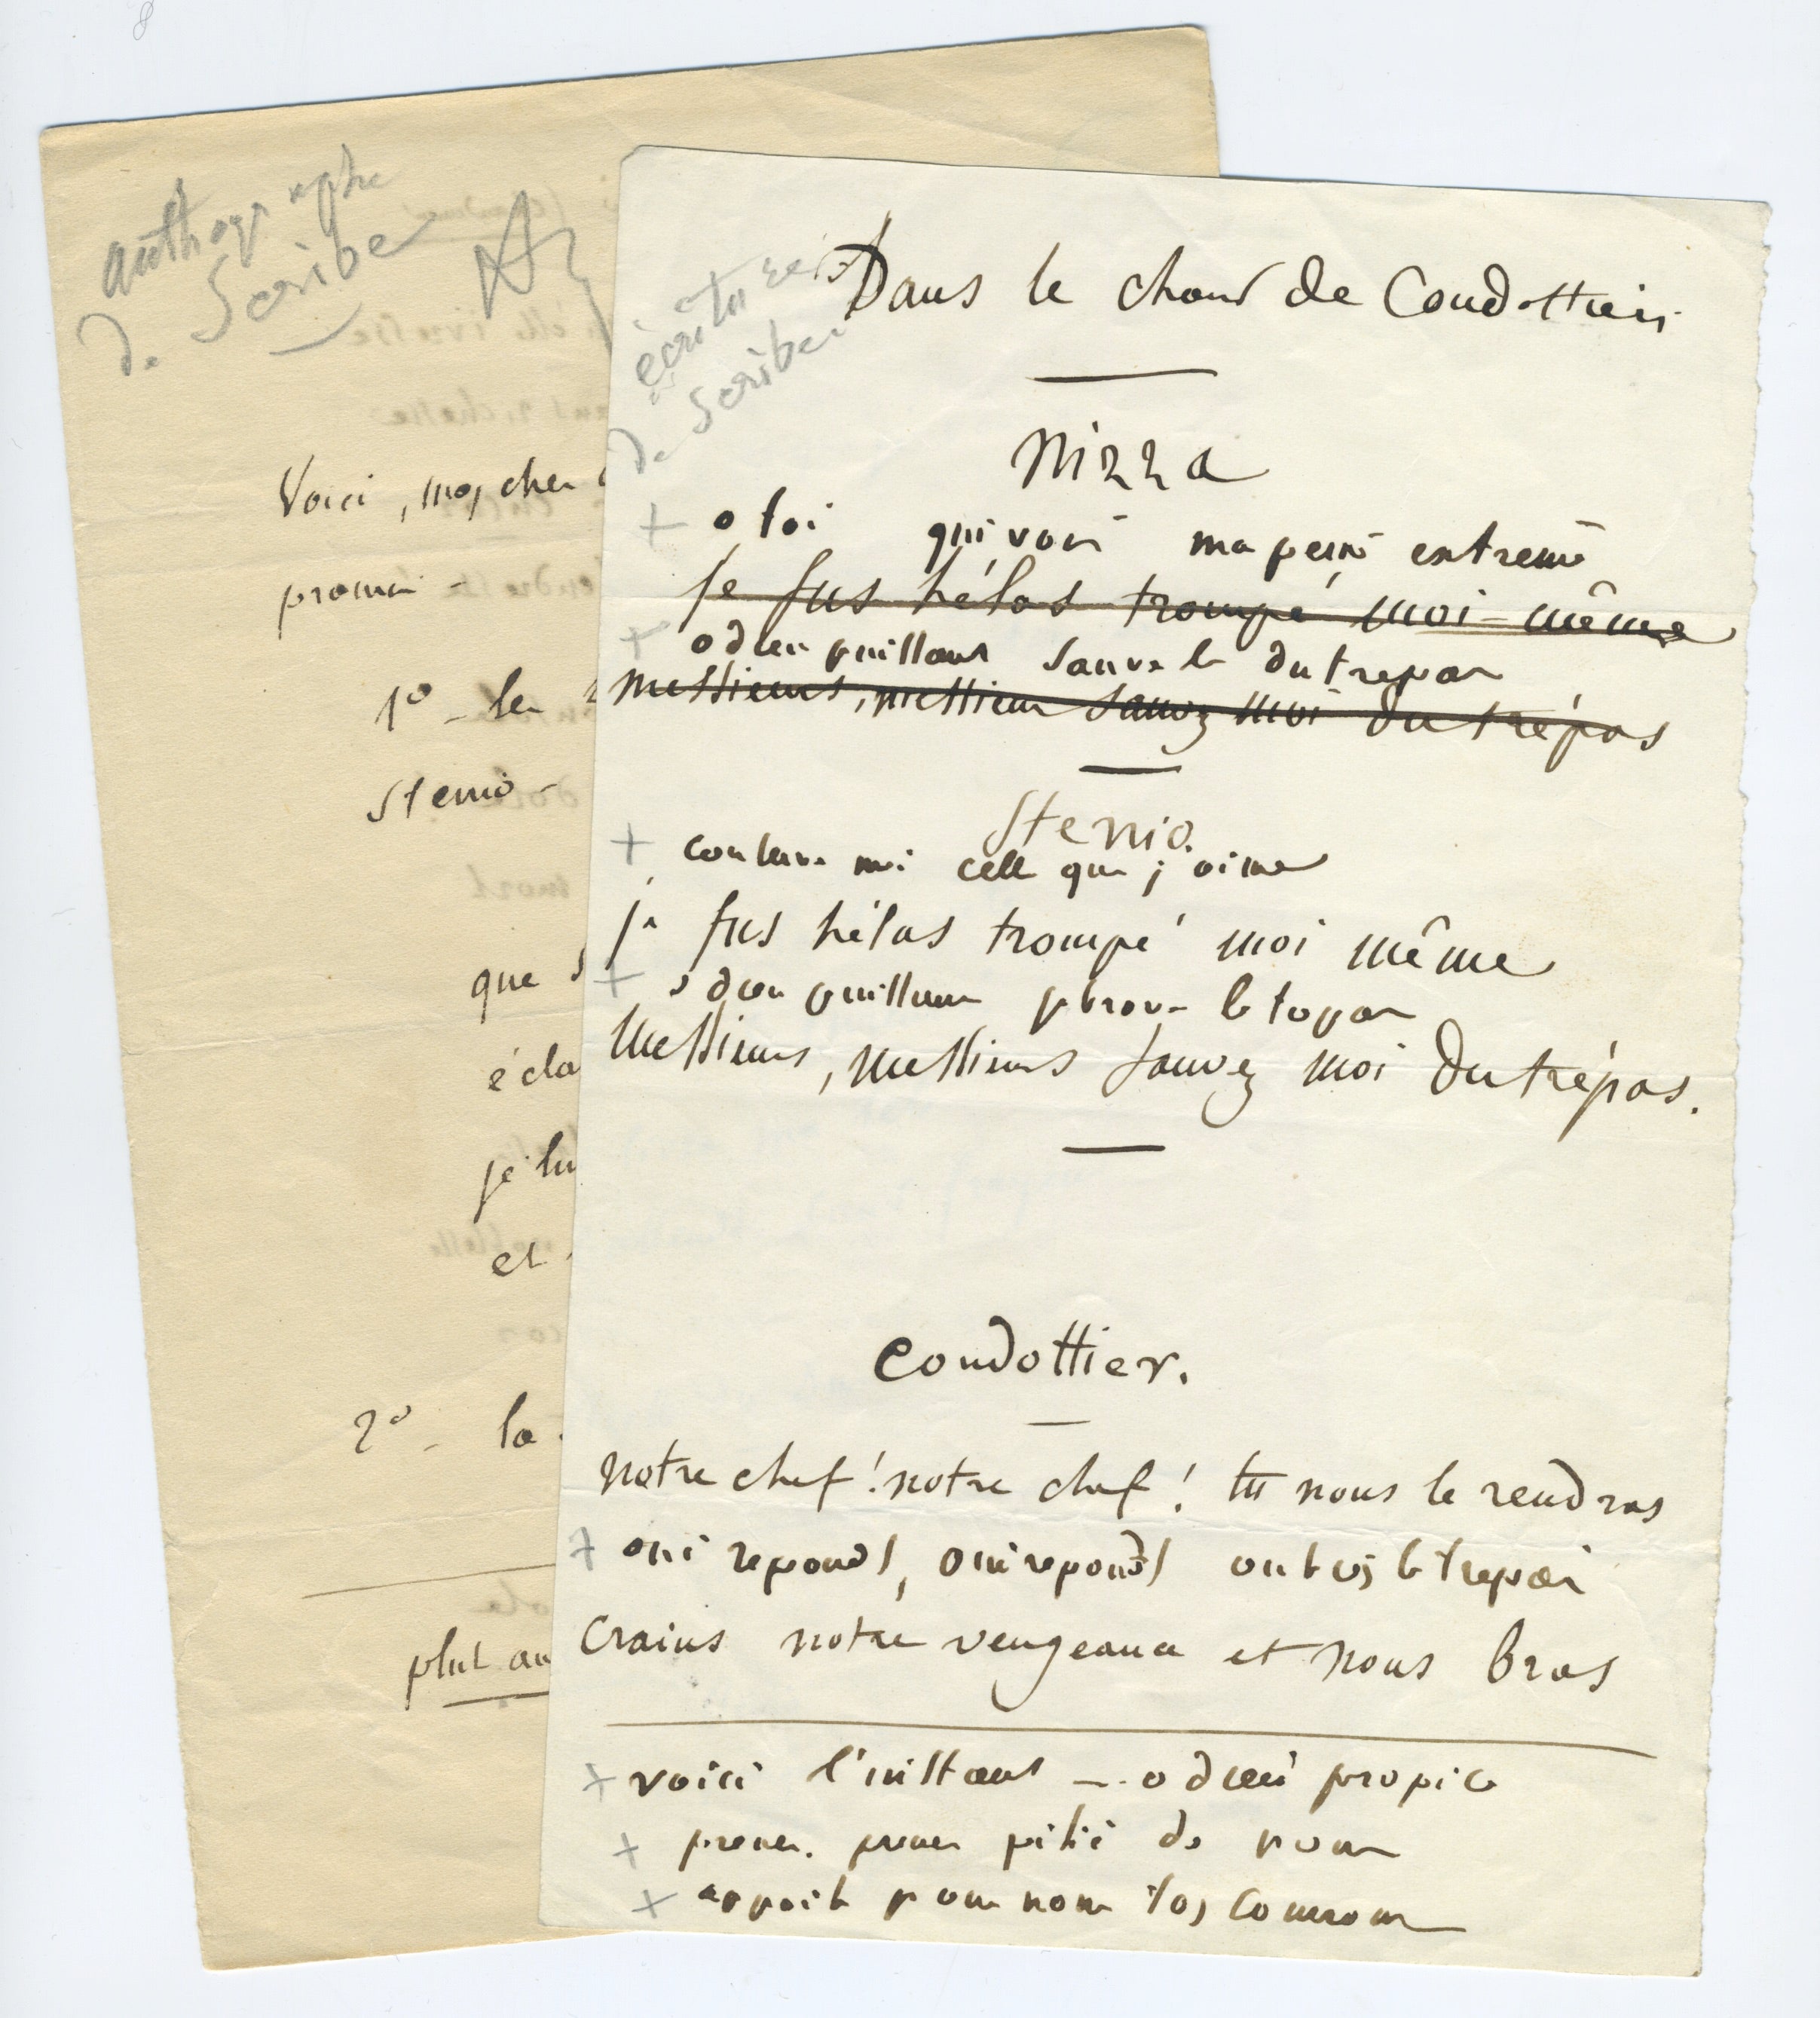 8
authographe
de Scribe
Voici, mon cher
promis -
1° - les
Stenio -
que
écla
je lu
et
2° - la
plut au
écriture
de Scribe
Dans le choeur de Condottieri
Nizza
+ o toi qui vois ma peine extreme
je fus hélas trompé moi-même
+ o dieu puissant sauve le du trepas
messieurs, messieurs sauvez moi du trépas
Stenio.
+ conserve moi celle que j'aime
je fus hélas trompé moi même
+ o dieu puissant
Messieurs, messieurs sauvez moi du trépas.
Condottier.
notre chef! notre chef! tu nous le rendras
+ oui reponds, oui reponds ou le trepas
Crains notre vengeance et nous bras
+ voici l'instant - o dieu propice
+ prenez. prenez pitié de nous
+ pour nous ton courroux